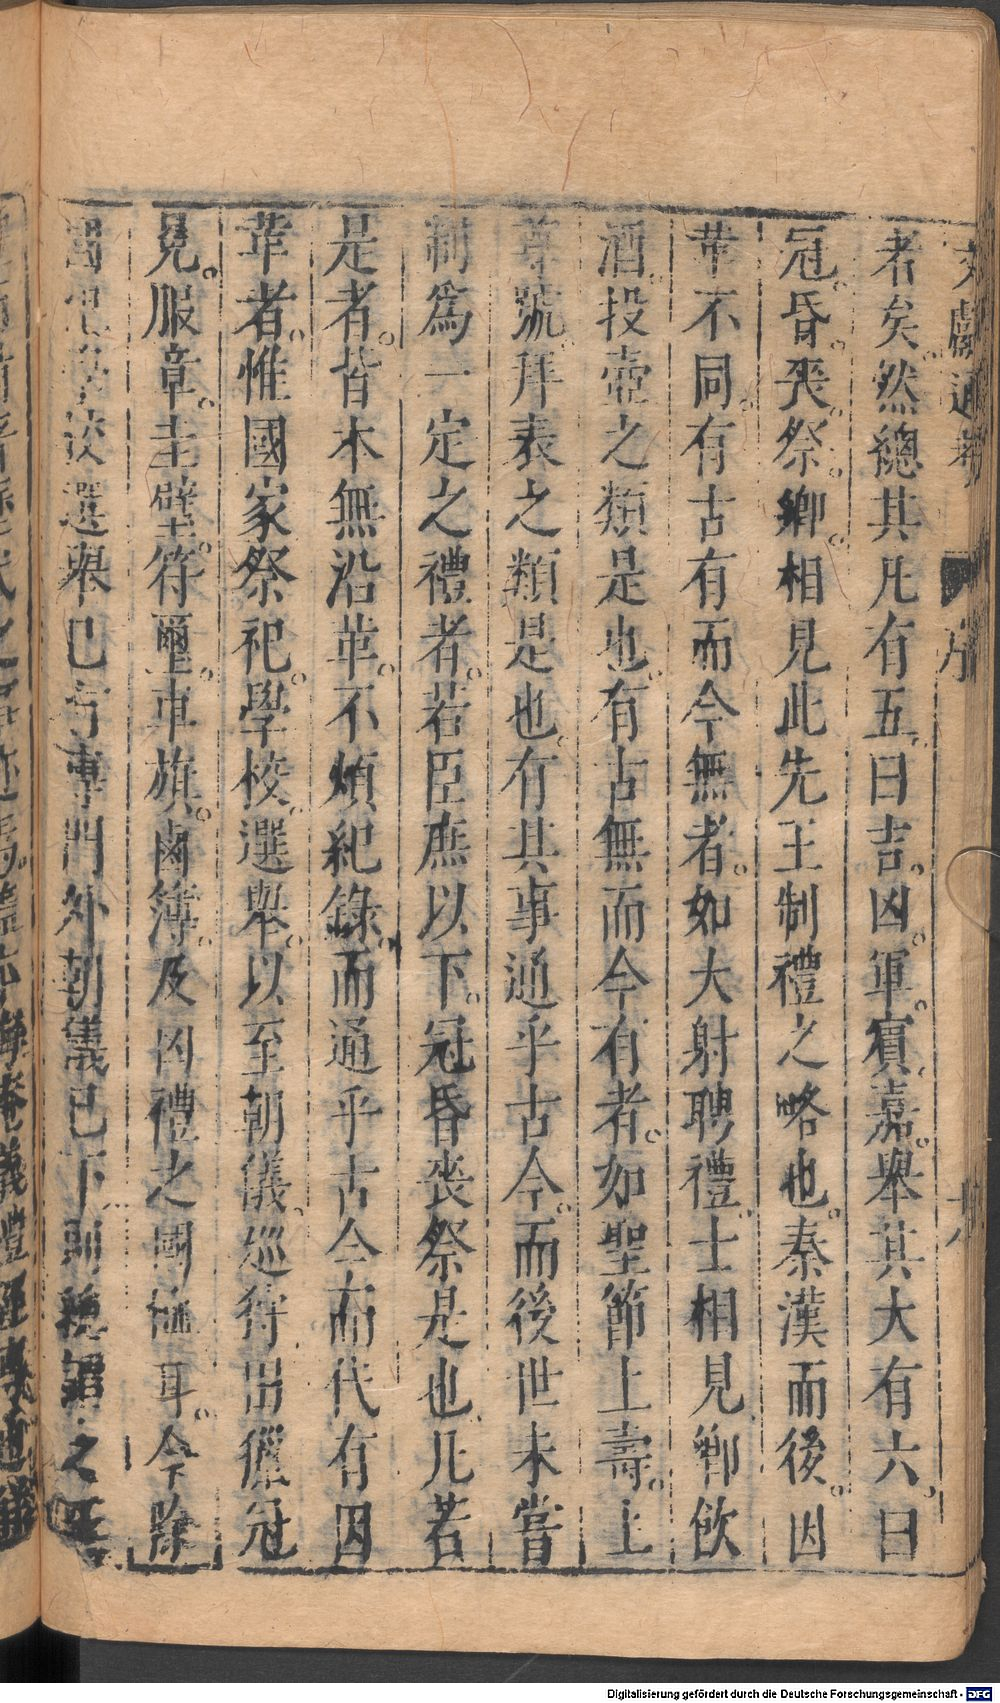 者矣然總其凡有五曰吉凶軍賓嘉舉其大有六曰
冠昏喪祭鄉相見此先王制禮之略也秦漢而後因
革不同有古有而今無者如大射聘禮士相見鄉飲
酒投壺之類是也有古無而今有者如聖節上壽上
尊號拜表之類是也有其事通乎古今而後世未嘗
制爲一定之禮者若臣庶以下冠昏喪祭是也凡若
是者皆本無沿革不煩紀錄而通乎古今而代有因
革者惟國家祭祀學校選舉以至朝儀巡狩田獵冠
冕服章圭璧符璽車旗鹵簿及凶禮之國恤耳今除
選舉已有專門外朝儀已下則總謂之王
文獻通考 序 十八
Digitalisierung gefördert durch die Deutsche Forschungsgemeinschaft - DFG